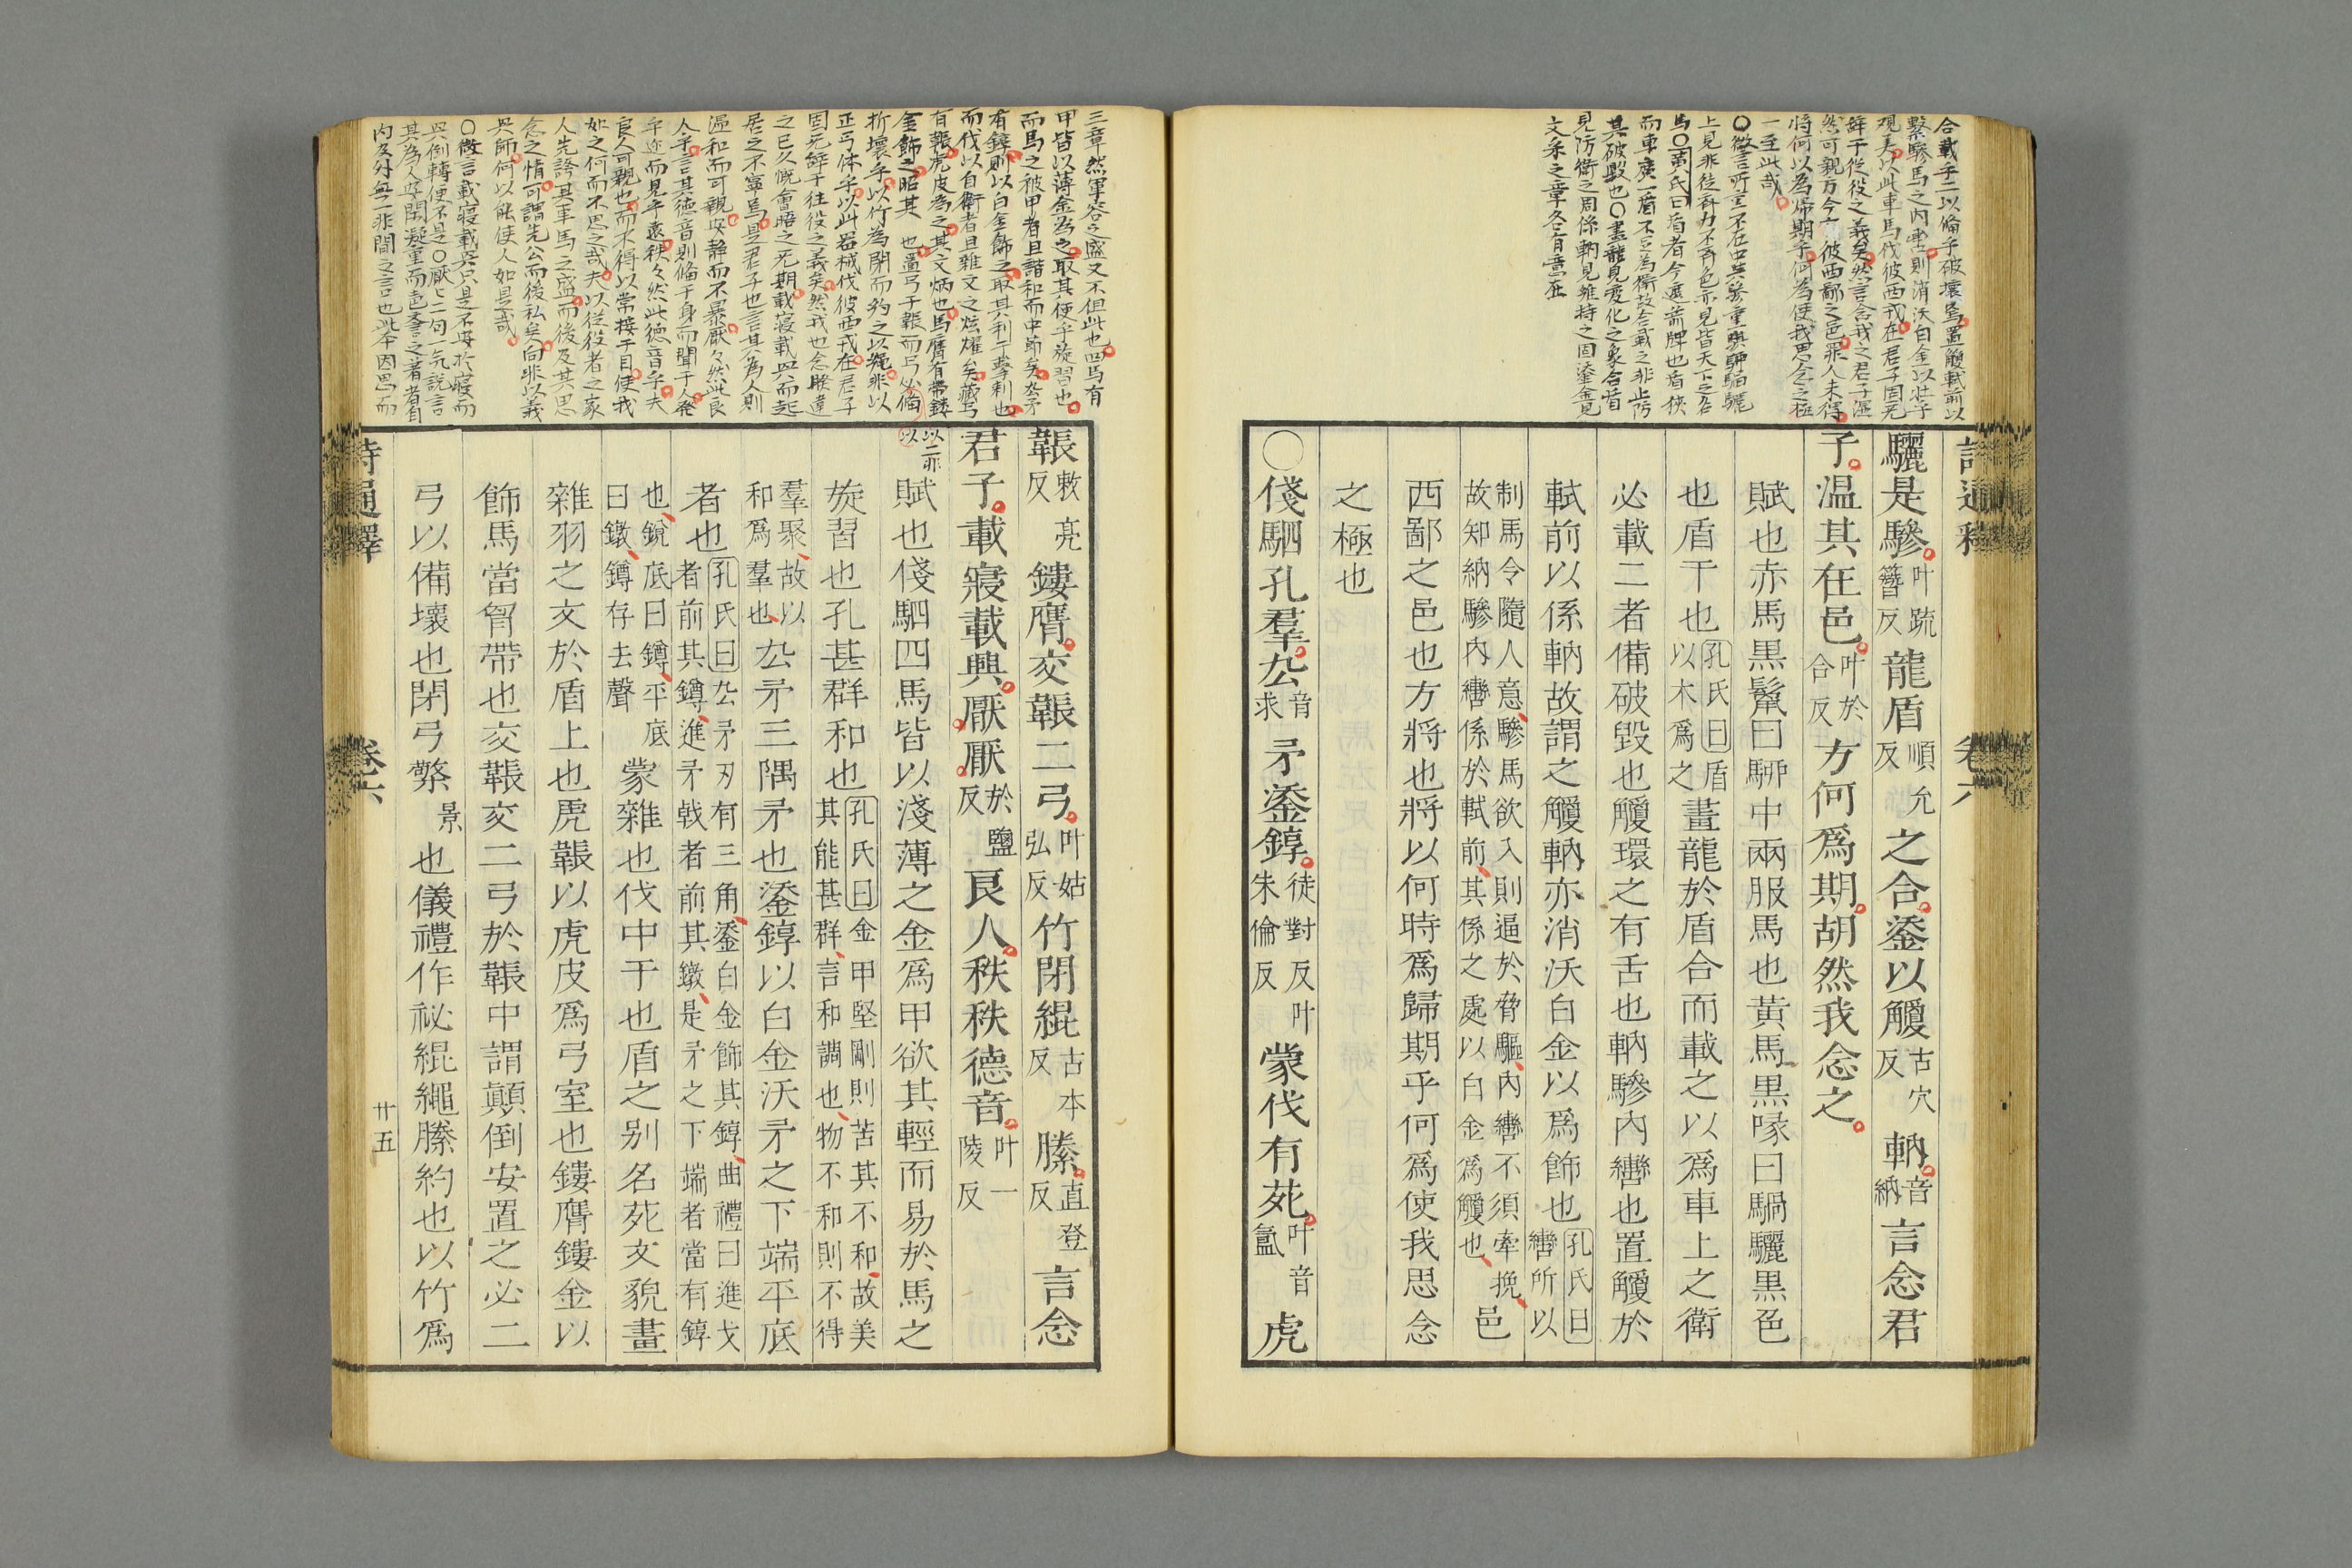 合載乎二以備乎破壞焉置觼軾前以
繫驂馬之內轡則消沃白金以壯乎
觀美以此車馬伐彼西戎在君子固无
辭于從役之義矣然言念我之君子溫
然可親方今在彼西鄙之邑罪人未得
將何以為歸期乎何為使我思念之極
一至此哉
見防衛之周係軜見維持之固鋈金見
文采之章各有意在
詩通釋 卷六
驪是驂叶疏簪反龍盾順允反之合鋈以觼古穴反軜音納言念君
子温其在邑叶於合反方何爲期胡然我念之
賦也赤馬黒鬣曰駵中兩服馬也黃馬黒喙曰騧驪黒色
也盾干也孔氏曰盾以木爲之畫龍於盾合而載之以爲車上之衛
必載二者備破毀也觼環之有舌也軜驂內轡也置觼於
軾前以係軜故謂之觼軜亦消沃白金以爲飾也孔氏曰轡所以
制馬令隨人意驂馬欲入則逼於脅驅內轡不須牽挽故知納驂內轡係於軾前其係之處以白金爲觼也邑
西鄙之邑也方將也將以何時爲歸期乎何爲使我思念
之極也
○俴駟孔羣厹音求矛鋈錞徒對反叶朱倫反蒙伐有苑叶音氳虎
三章然軍容之盛又不但此也四馬有
甲皆以薄金為之取其便乎旋習也
而馬之被甲者且諧和而中節矣厹矛
有錞則以白金飾之取其利于擊刺也
而伐以自衛者且雜文之炫耀矣藏弓
有韔虎皮為之其文炳也馬膺有帶鏤
金飾之昭其 也置弓于韔而弓必備
折壞乎以竹為閉而約之以繩非以
正弓体乎以此器械伐彼西戎在君子
固无辭于往役之義矣然我也念睽違
之已久慨會晤之无期載寢載興而起
居之不寧焉是君子也言其為人則
溫和而可親安静而不暴厭々然此良
人乎言其德音則脩于身而聞于人發
乎迩而見乎遠秩々然此德音乎夫
良人可親也而不得以常接于目使我
如之何而不思之哉夫以從役者之家
人先誇其車馬之盛而後及其思
念之情可謂先公而後私矣向非以義
興師何以能使人如是哉
○微言載寢載興只是不安於寢而
以二非以
韔敕亮反鏤膺交韔二弓叶姑弘反竹閉緄古本反縢直登反言念
君子載寢載興厭厭於鹽反良人秩秩德音叶一陵反
賦也俴駟四馬皆以淺薄之金爲甲欲其輕而易於馬之
旋習也孔甚群和也孔氏曰金甲堅剛則苦其不和故美其能甚群言和調也物不和則不得
羣聚故以和爲羣也厹矛三隅矛也鋈錞以白金沃矛之下端平底
者也孔氏曰厹矛刃有三角鋈白金飾其錞曲禮曰進戈者前其鐏進矛戟者前其鐓是矛之下端者當有錞
也銳底曰鐏平底曰鐓鐏存去聲蒙雜也伐中干也盾之别名苑文貌畫
雜羽之文於盾上也虎韔以虎皮爲弓室也鏤膺鏤金以
飾馬當胷帶也交韔交二弓於韔中謂顛倒安置之必二
弓以備壞也閉弓檠景也儀禮作䪐緄繩縢約也以竹爲
詩通釋 卷六 廿五